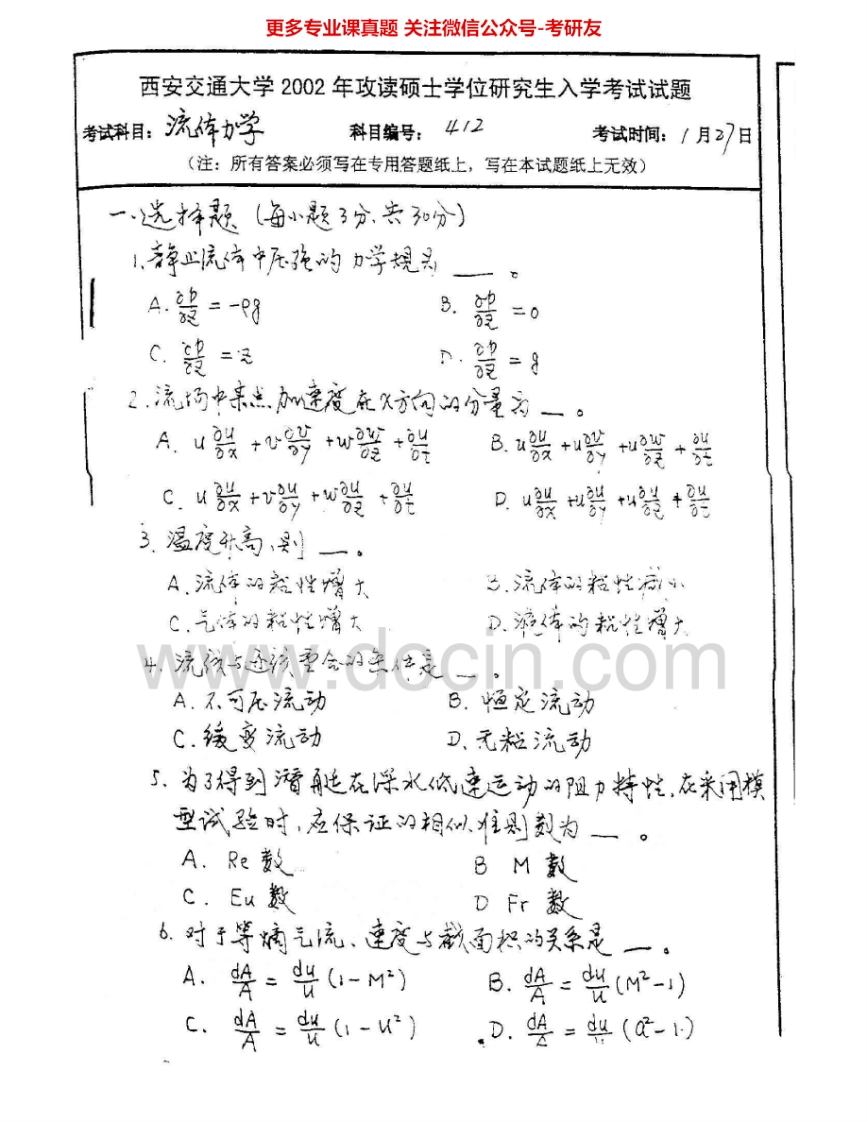 更多专业课真题 关注微信公众号-考研友
西安交通大学 2002 年攻读硕士学位研究生入学考试试题
考试科目：流体力学 科目编号：412 考试时间：1月27日
（注：所有答案必须写在专用答题纸上，写在本试题纸上无效）
一、选择题（每小题3分、共30分）
1、静止流体中压强的力学规律 ___ 。
A. ∂p/∂z = -ρg B. ∂p/∂z = 0
C. ∂p/∂z = z D. ∂p/∂z = g
2、流场中某点加速度在X方向的分量为 __ 。
A. u ∂u/∂x + v ∂v/∂y + w ∂w/∂z + ∂u/∂t B. u ∂u/∂x + u ∂v/∂y + u ∂w/∂z + ∂u/∂t
C. u ∂u/∂x + v ∂u/∂y + w ∂u/∂z + ∂u/∂t D. u ∂u/∂x + u ∂u/∂y + u ∂u/∂z + ∂u/∂t
3. 温度升高、则 __ 。
A. 流体的粘性增大 B. 流体的粘性减小
C. 气体的粘性增大 D. 液体的粘性增大
www.docin.com
4. 流线与迹线重合的条件是 __ 。
A. 不可压流动 B. 恒定流动
C. 缓变流动 D. 无粘流动
5. 为了得到潜艇在深水低速运动的阻力特性，在采用模
型试验时，应保证的相似准则数为 __ 。
A. Re 数 B M 数
C. Eu 数 D Fr 数
6. 对于等熵气流、速度与截面积的关系是 __ 。
A. dA/A = du/u (1-M²) B. dA/A = du/u (M²-1)
C. dA/A = du/u (1-u²) D. dA/A = du/u (a²-1)